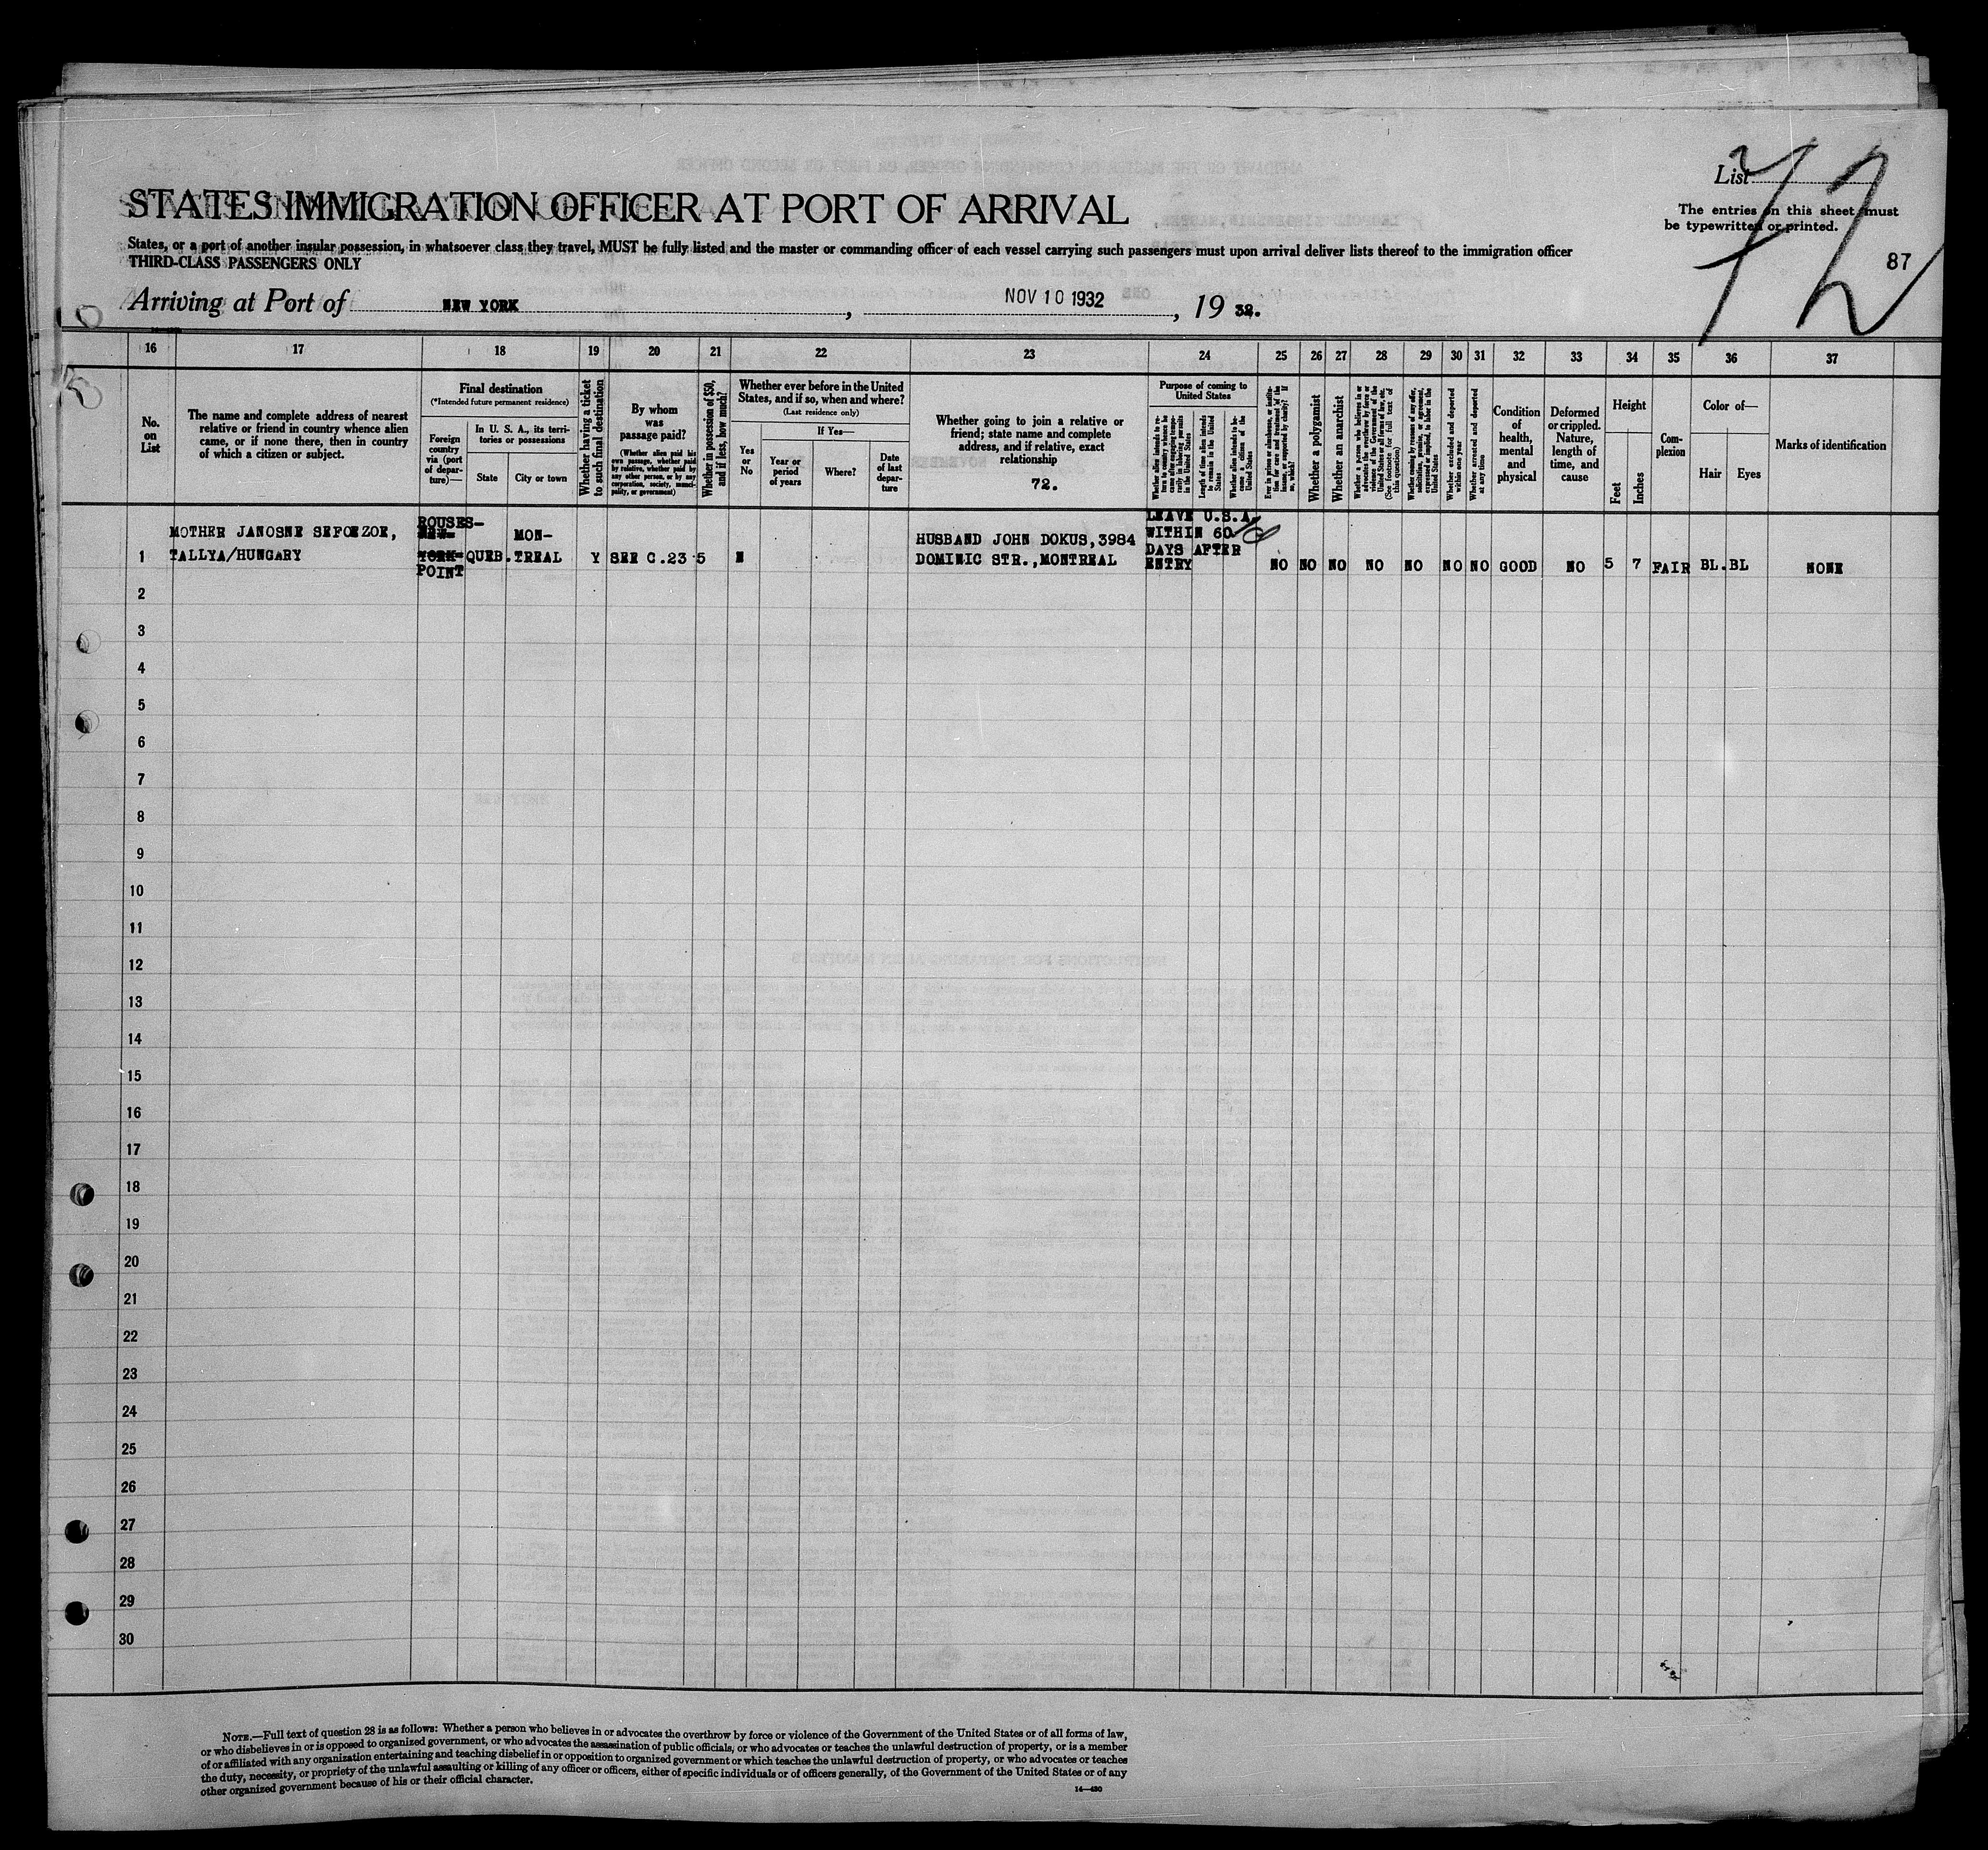 List
72
STATES IMMIGRATION OFFICER AT PORT OF ARRIVAL
The entries on this sheet must
be typewritten or printed.
States, or a port of another insular possession, in whatsoever class they travel, MUST be fully listed and the master or commanding officer of each vessel carrying such passengers must upon arrival deliver lists thereof to the immigration officer
THIRD-CLASS PASSENGERS ONLY
87
Arriving at Port of NEW YORK, NOV 10 1932, 19 32.
16 17 18 19 20 21 22 23 24 25 26 27 28 29 30 31 32 33 34 35 36 37
No.
on
List
The name and complete address of nearest
relative or friend in country whence alien
came, or if none there, then in country
of which a citizen or subject.
Final destination
(*Intended future permanent residence)
Foreign
country
via (port
of depar-
ture)—
In U. S. A., its terri-
tories or possessions
State
City or town
Whether having a ticket
to such final destination
By whom
was
passage paid?
(Whether alien paid his
own passage, whether paid
by relative, whether paid by
any other person, or by any
corporation, society, munici-
pality, or government)
Whether in possession of $50,
and if less, how much?
Whether ever before in the United
States, and if so, when and where?
(Last residence only)
Yes
or
No
If Yes—
Year or
period
of years
Where?
Date
of last
depar-
ture
Whether going to join a relative or
friend; state name and complete
address, and if relative, exact
relationship
72.
Purpose of coming to
United States
Whether alien intends to re-
turn to country whence he
came after engaging tempo-
rarily in laboring pursuits
in the United States
Length of time alien intends
to remain in the United
States
Whether alien intends to be-
come a citizen of the
United States
Ever in prison or almshouse, or institu-
tion for care and treatment of the
insane, or supported by charity? If
so, which?
Whether a polygamist
Whether an anarchist
Whether a person who believes in or
advocates the overthrow by force or
violence of the Government of the
United States or all forms of law, etc.
(See footnote for full text of
this question)
Whether coming by reason of any offer,
solicitation, promise, or agreement,
expressed or implied, to labor in the
United States
Whether excluded and deported
within one year
Whether arrested and deported
at any time
Condition
of
health,
mental
and
physical
Deformed
or crippled.
Nature,
length of
time, and
cause
Height
Feet
Inches
Com-
plexion
Color of—
Hair
Eyes
Marks of identification
1
MOTHER JANOSNE SEFCZZOE,
TALLYA/HUNGARY
ROUSES-
NEW-
YORK-
POINT
QUEB.
MON-
TREAL
Y
SEE C.23
5
N
HUSBAND JOHN DOKUS,3984
DOMINIC STR.,MONTREAL
LEAVE U.S.A.
WITHIN 60
DAYS AFTER
ENTRY
NO NO NO NO NO NO NO GOOD NO 5 7 FAIR BL. BL NONE
2
3
4
5
6
7
8
9
10
11
12
13
14
15
16
17
18
19
20
21
22
23
24
25
26
27
28
29
30
NOTE.—Full text of question 28 is as follows: Whether a person who believes in or advocates the overthrow by force or violence of the Government of the United States or of all forms of law,
or who disbelieves in or is opposed to organized government, or who advocates the assassination of public officials, or who advocates or teaches the unlawful destruction of property, or is a member
of or affiliated with any organization entertaining and teaching disbelief in or opposition to organized government or which teaches the unlawful destruction of property, or who advocates or teaches
the duty, necessity, or propriety of the unlawful assaulting or killing of any officer or officers, either of specific individuals or of officers generally, of the Government of the United States or of any
other organized government because of his or their official character.
14—430